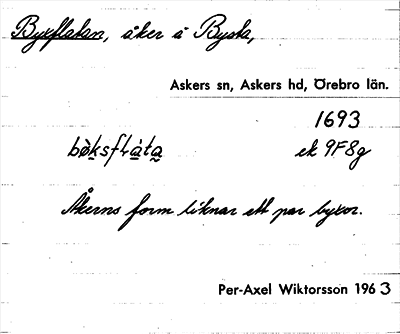 Byxflatan, åker å Bysta,
Askers sn, Askers hd, Örebro län.
1693
bøksflàta ek 9F8g
Åkerns form liknar ett par byxor.
Per-Axel Wiktorsson 1963